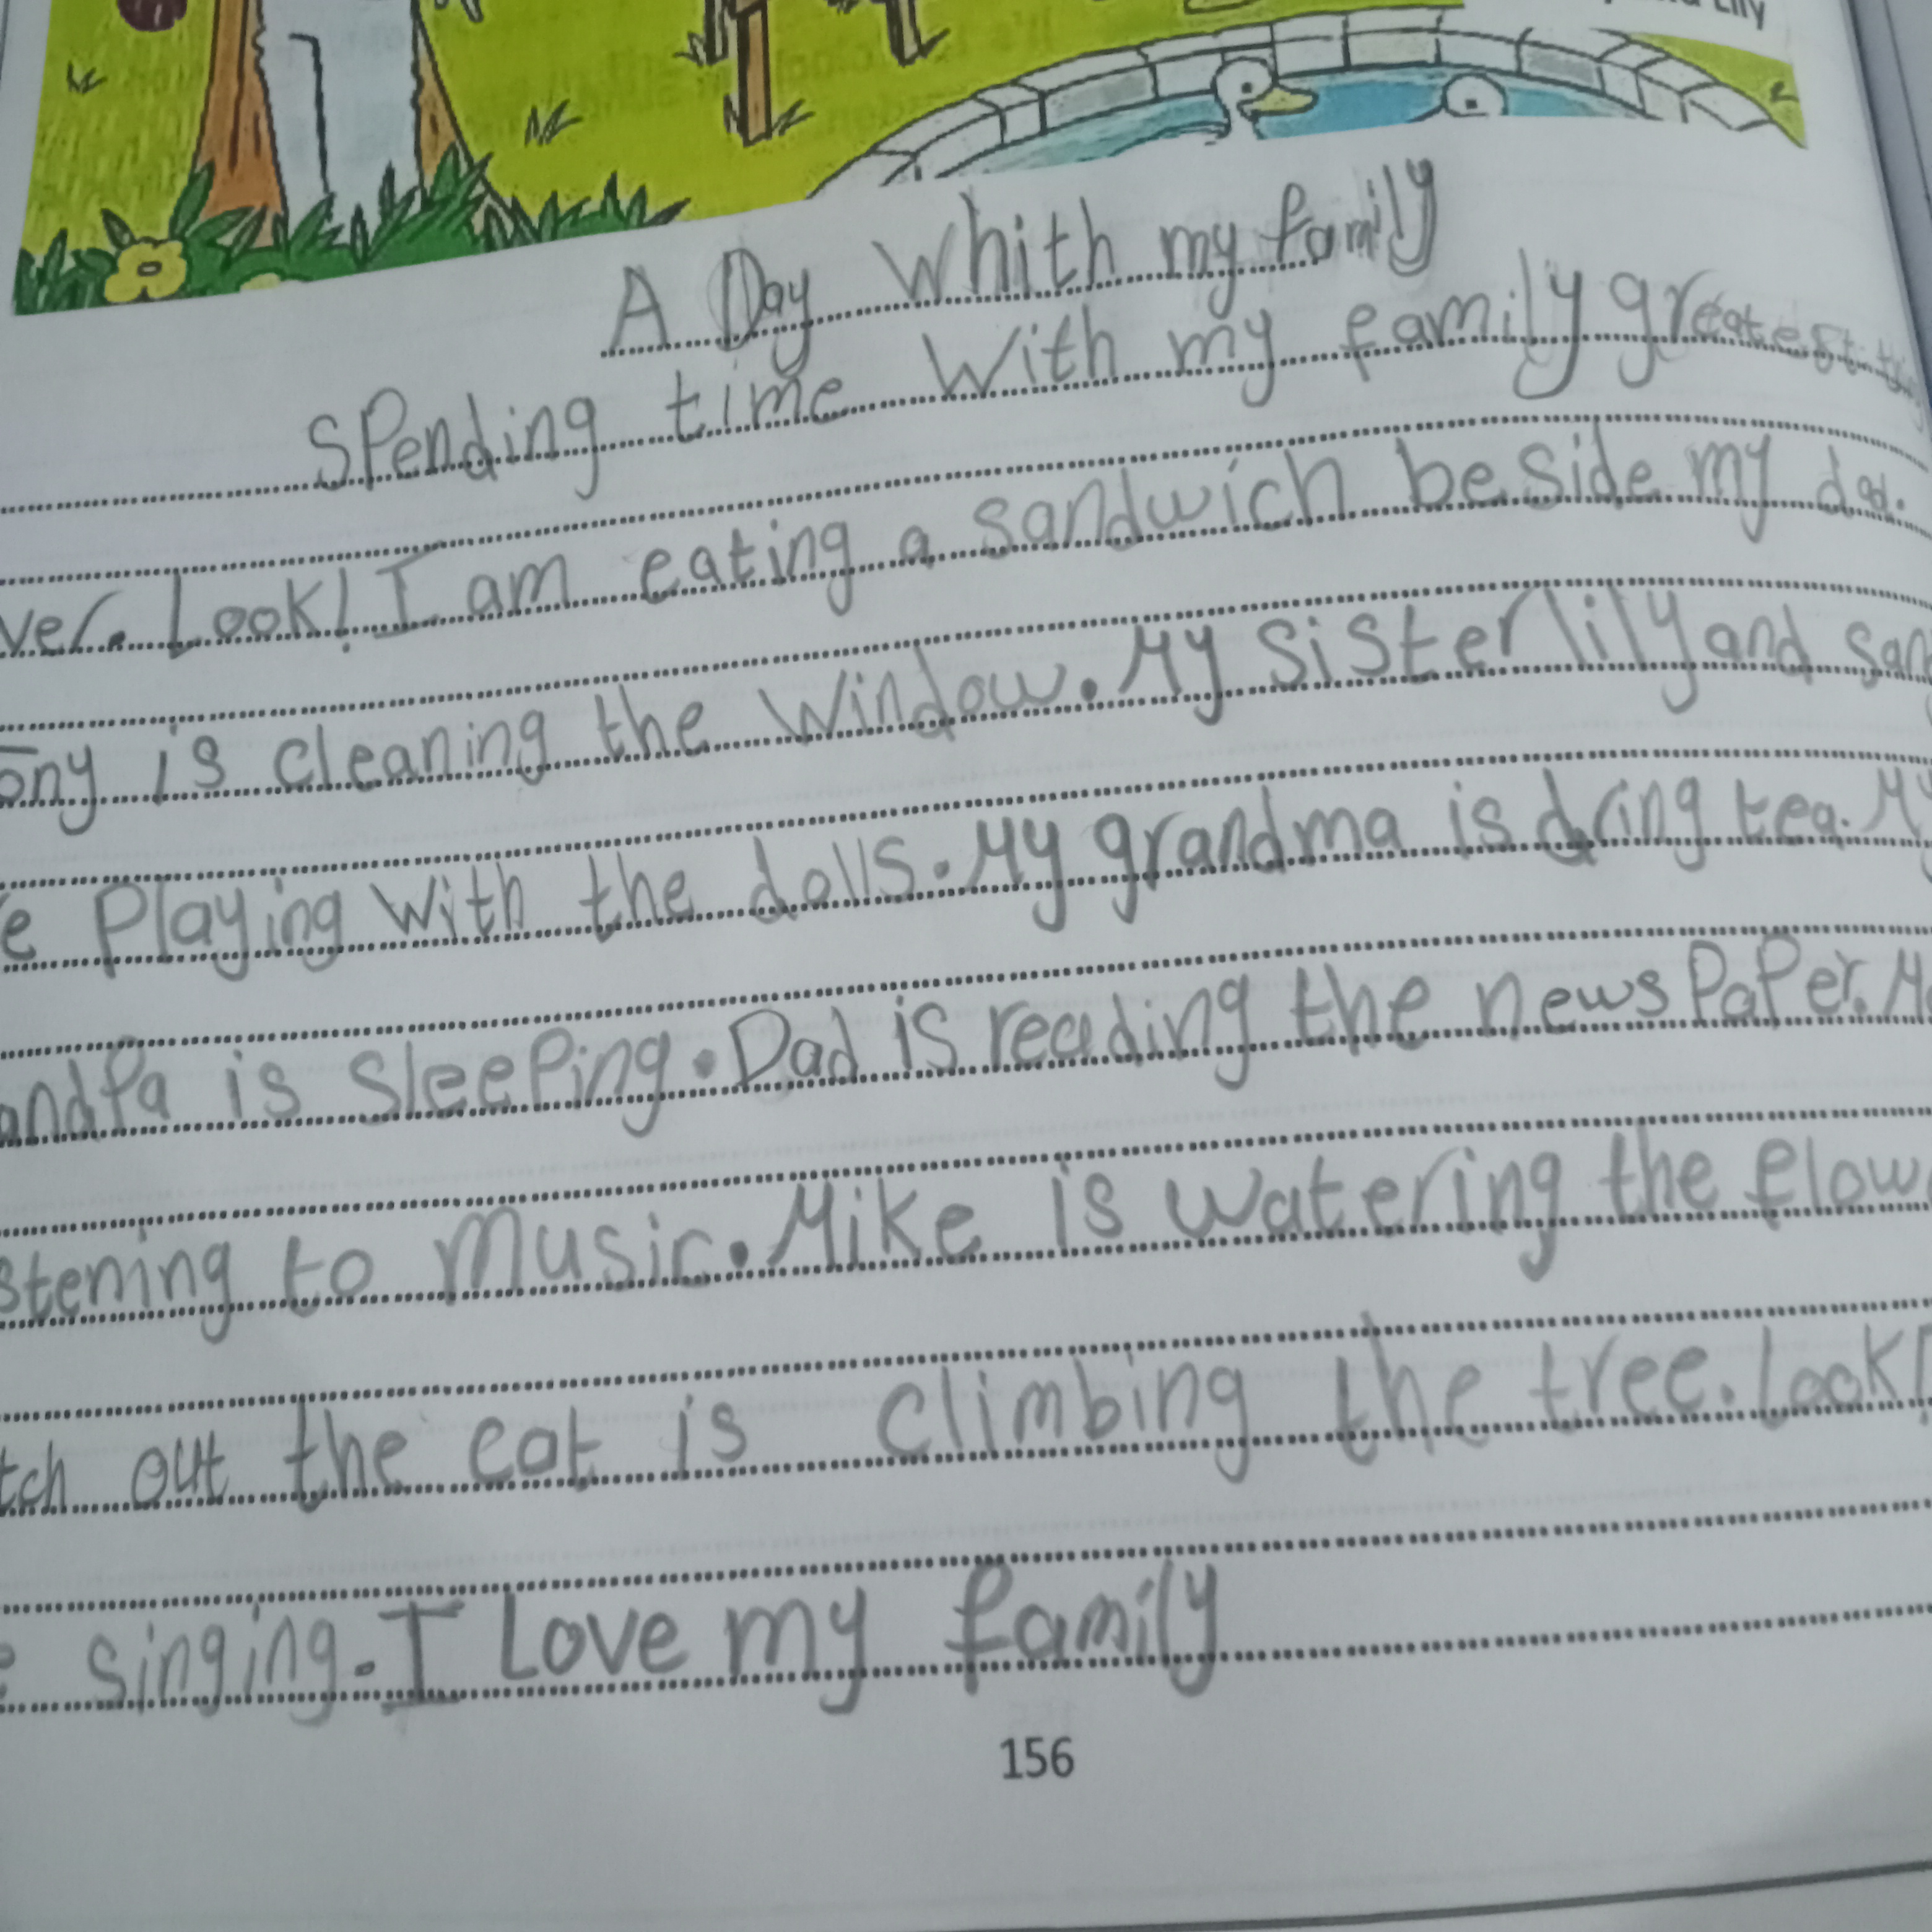 Lily
A Day Whith my family
spending time with my family greatest
ver. Look! I am eating a sandwich beside my dad.
ony is cleaning the window. My sister lily and san
e playing with the dolls. My grandma is dring tea. My
andpa is sleeping. Dad is reading the newspaper. M
stening to music. Mike is watering the flow
tch out the cat is climbing the tree. look!
e singing. I Love my family
156